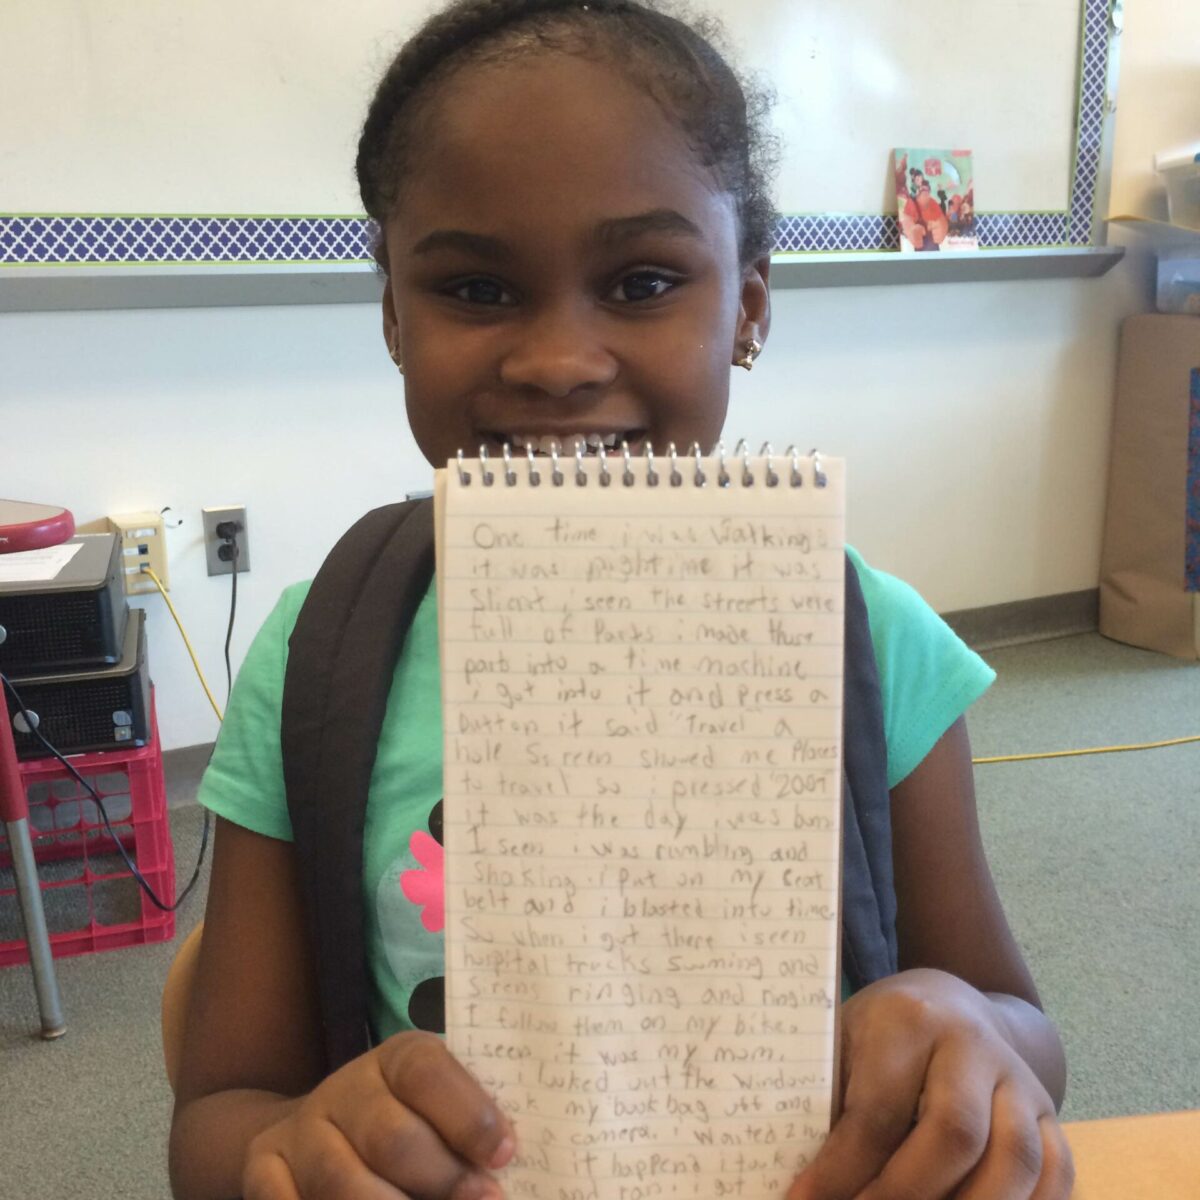 One time i was walking
it was nightime it was
Slient, i seen the streets were
full of Parts i made those
parts into a time machine
i got into it and press a
button it said "Travel" a
hole Screen showed me Places
to travel so i pressed "2007
it was the day i was born.
I seen i was rumbling and
Shaking. i put on my Seat
belt and i blasted into time.
So when i got there i seen
hospital trucks and
Sirens ringing and ringing.
I follow them on my bike.
i seen it was my mom.
So, i looked out the window.
took my bookbag off and
a camera. i waited 2
and it happend i took a
and ran. i got in